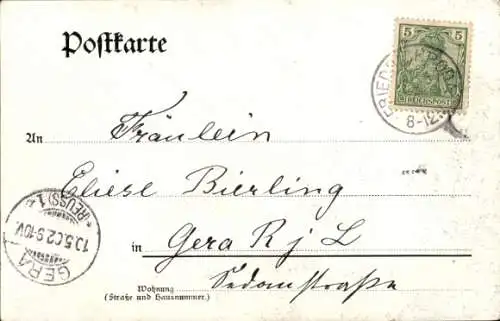 Postkarte
5 5
REICHSPOST
8-12
An Fräulein
Eliese Bierling
in Gera R j L
Sedanstraße
Wohnung
(Straße und Hausnummer.)
GERA
10.5.02.9-10V.
(REUSS) 1.